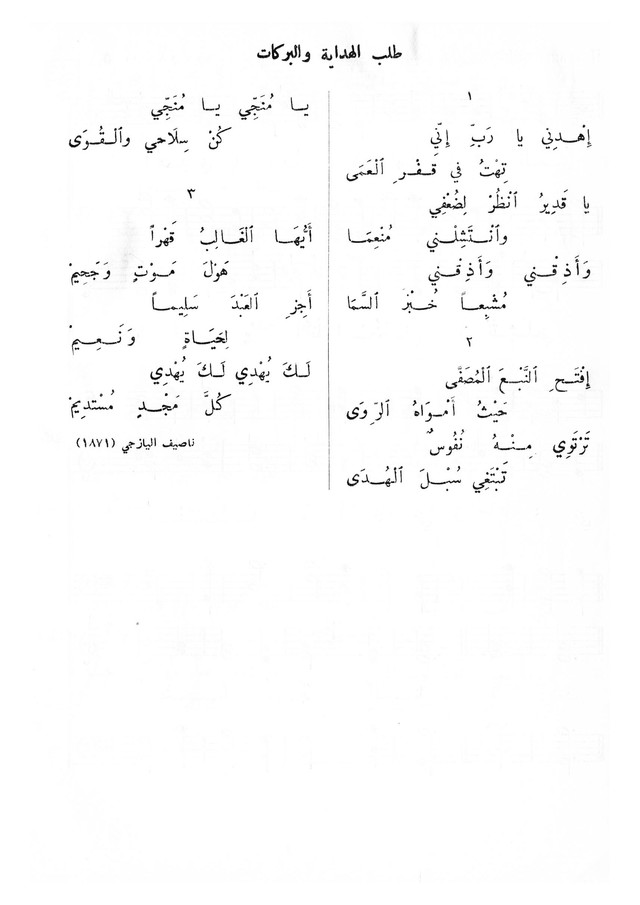 طلب الهداية والبركات
١
إِهْدِنِي يا رَبِّ إِنِّي
تِهْتُ في قَـفْـرِ ٱلْعَمَى
يا قَدِيرُ ٱنْظُرْ لِضُعْفِي
وٱنْـتَـشِلْـني مُنْعِمَـا
وَأَذِقْـني وَأَذِقْـني
مُشْبِعـاً خُبْزَ السَّمَا
٢
إِفْتَـحِ ٱلنَّبْعَ ٱلْمُصَفَّى
حَيْثُ أَمْـوَاهُ ٱلرِّوَى
تَرْتَوِي مِـنْـهُ نُفُوسٌ
تَبْتَغِي سُبْـلَ ٱلْهُـدَى
يـا مُنَجِّي يـا مُنَجِّي
كُنْ سِلَاحي وٱلْـقُـوَى
٣
أَيُّهَـا ٱلغَـالِبُ قَهْراً
هَوْلَ مَـوْتٍ وَجَحِيمْ
أَجِزِ ٱلعَبْدَ سَلِيمـاً
لِحَيَـاةٍ وَنَـعِـيمْ
لَـكَ يُهْدِي لَـكَ يُهْدِي
كُلَّ مَجْـدٍ مُسْتَدِيمْ
ناصيف اليازجي (١٨٧١)